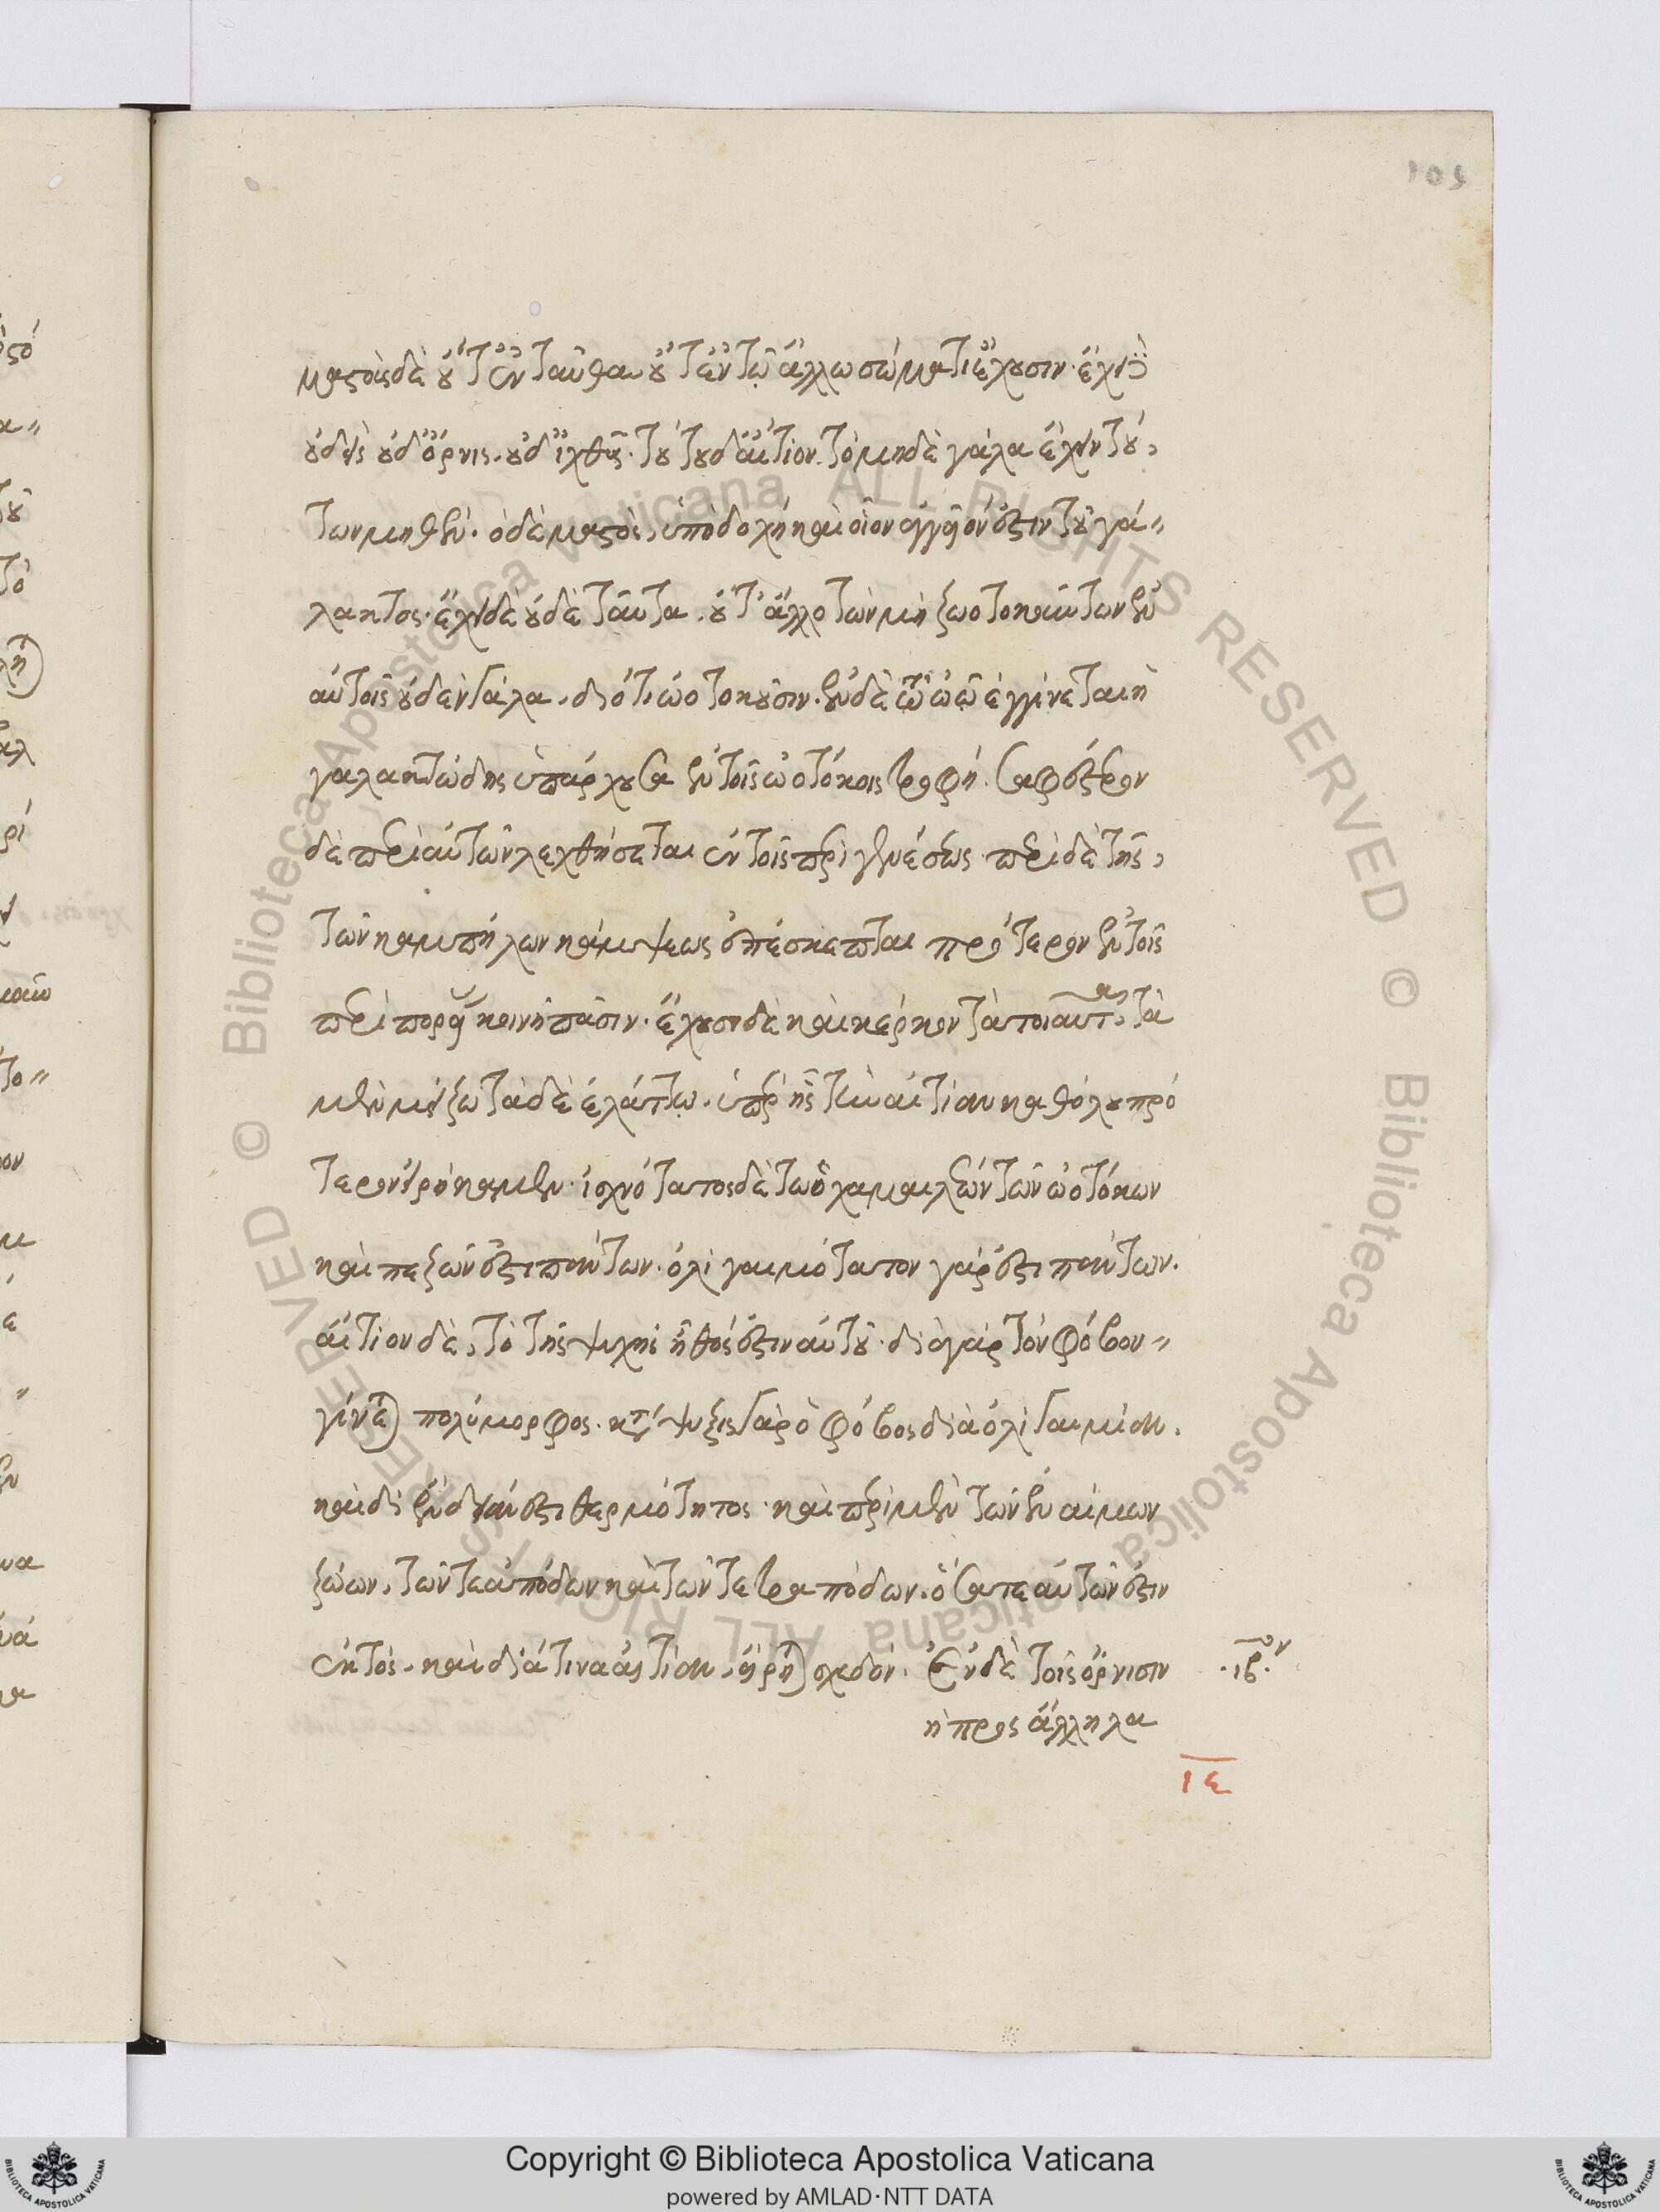 105
μαστοὺς δὲ οὔτ' ἐνταῦθα οὔτ' ἐν τῷ ἄλλῳ σώματι ἔχουσιν· ἔχει δ'
οὐδεὶς οὐδ' ὄρνις, οὐδ' ἰχθῦς· τούτου δ' αἴτιον, τὸ μηδὲ γάλα ἔχειν τού-
των μηθέν· ὁ δὲ μαστὸς, ὑποδοχή καὶ οἷον ἀγγεῖόν ἐστιν τοῦ γά-
λακτος· ἔχει δὲ οὐδὲ ταῦτα, οὔτ' ἄλλο τῶν μὴ ζωοτοκούντων ἐν
αὑτοῖς οὐδὲν γάλα, διότι ὠοτοκοῦσιν· ἐν δὲ τῷ ὠῷ ἐγγίνεται ἡ
γαλακτώδης ὑπάρχουσα ἐν τοῖς ὠοτόκοις τροφή. σαφέστερον
δὲ περὶ αὐτῶν λεχθήσεται ἐν τοῖς περὶ γενέσεως· περὶ δὲ τῆς,
τῶν καμπύλων κάμψεως ἐπέσκεπται πρότερον ἐν τοῖς
περὶ πορείας κοινῇ πᾶσιν· ἔχουσι δὲ καὶ κέρκον τὰ τοιαῦτα, τὰ
μὲν μείζω τὰ δὲ ἐλάττω, ὑπὲρ ἧς τὴν αἰτίαν καθόλου πρό
τερον εἰρήκαμεν· ἰσχνότατος δὲ τῶ ὁ χαμαιλέων τῶν ὠοτόκων
καὶ πεζῶν ἐστι πάντων· ὀλιγαιμότατον γάρ ἐστι πάντων.
αἴτιον δὲ, τὸ τῆς ψυχῆς ἦθός ἐστιν αὐτοῦ· διὰ γὰρ τὸν φόβον
γίνεται πολύμορφος· κατάψυξις γὰρ ὁ φόβος διὰ ὀλιγαιμίαν.
καὶ δι' ἔνδειάν ἐστι θερμότητος· καὶ περὶ μὲν τῶν ἐναίμων
ζώων, τῶν τε ἀπόδων καὶ τῶν τετραπόδων, ὅσα τε αὐτῶν ἐστιν
ἐκτός, καὶ διὰ τίνα αἰτίαν, εἴρηται σχεδόν. Ἐν δὲ τοῖς ὄρνισιν ·ιβ·ον
ἡ προς ἄλληλα
ιε